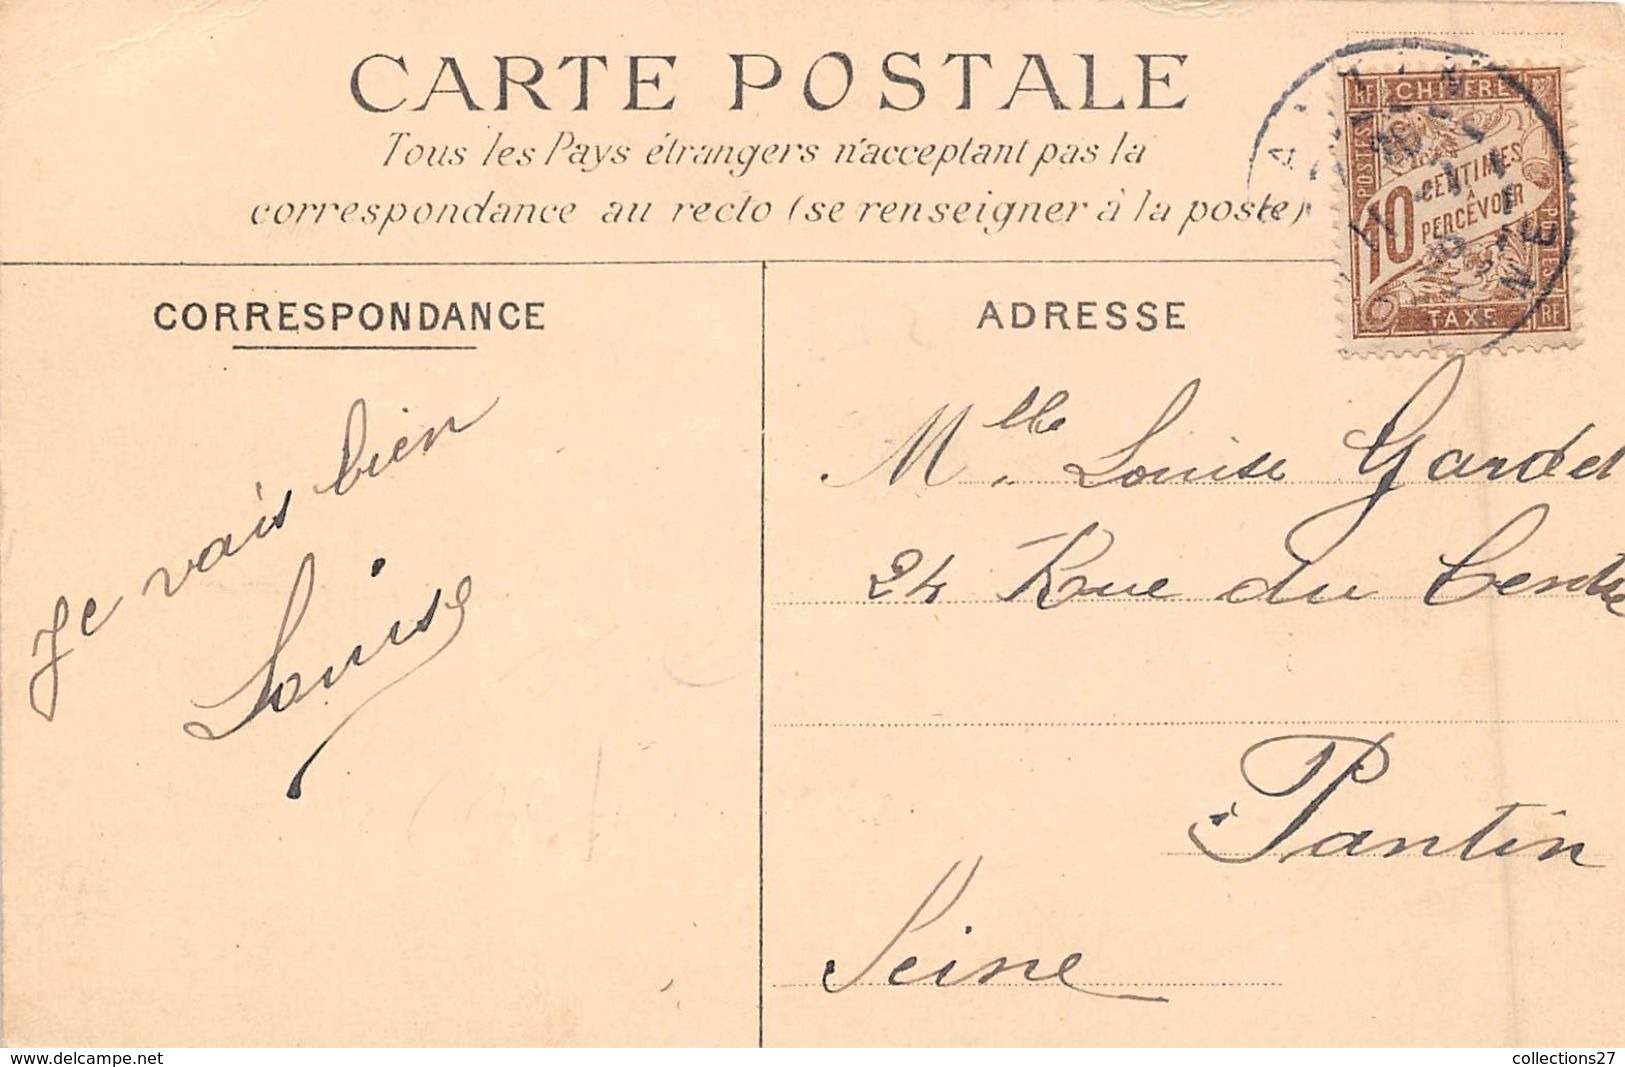 CARTE POSTALE
Tous les Pays étrangers n'acceptant pas la
correspondance au recto (se renseigner à la poste)
CORRESPONDANCE
Je vais bien
Louise
ADRESSE
RF CHIFFRE
POSTES
10 CENTIMES
À
PERCEVOIR
POSTES
TAXE RF
Mlle. Louise Gardel
24 Rue du Centre
à Pantin
Seine
www.delcampe.net
collections27